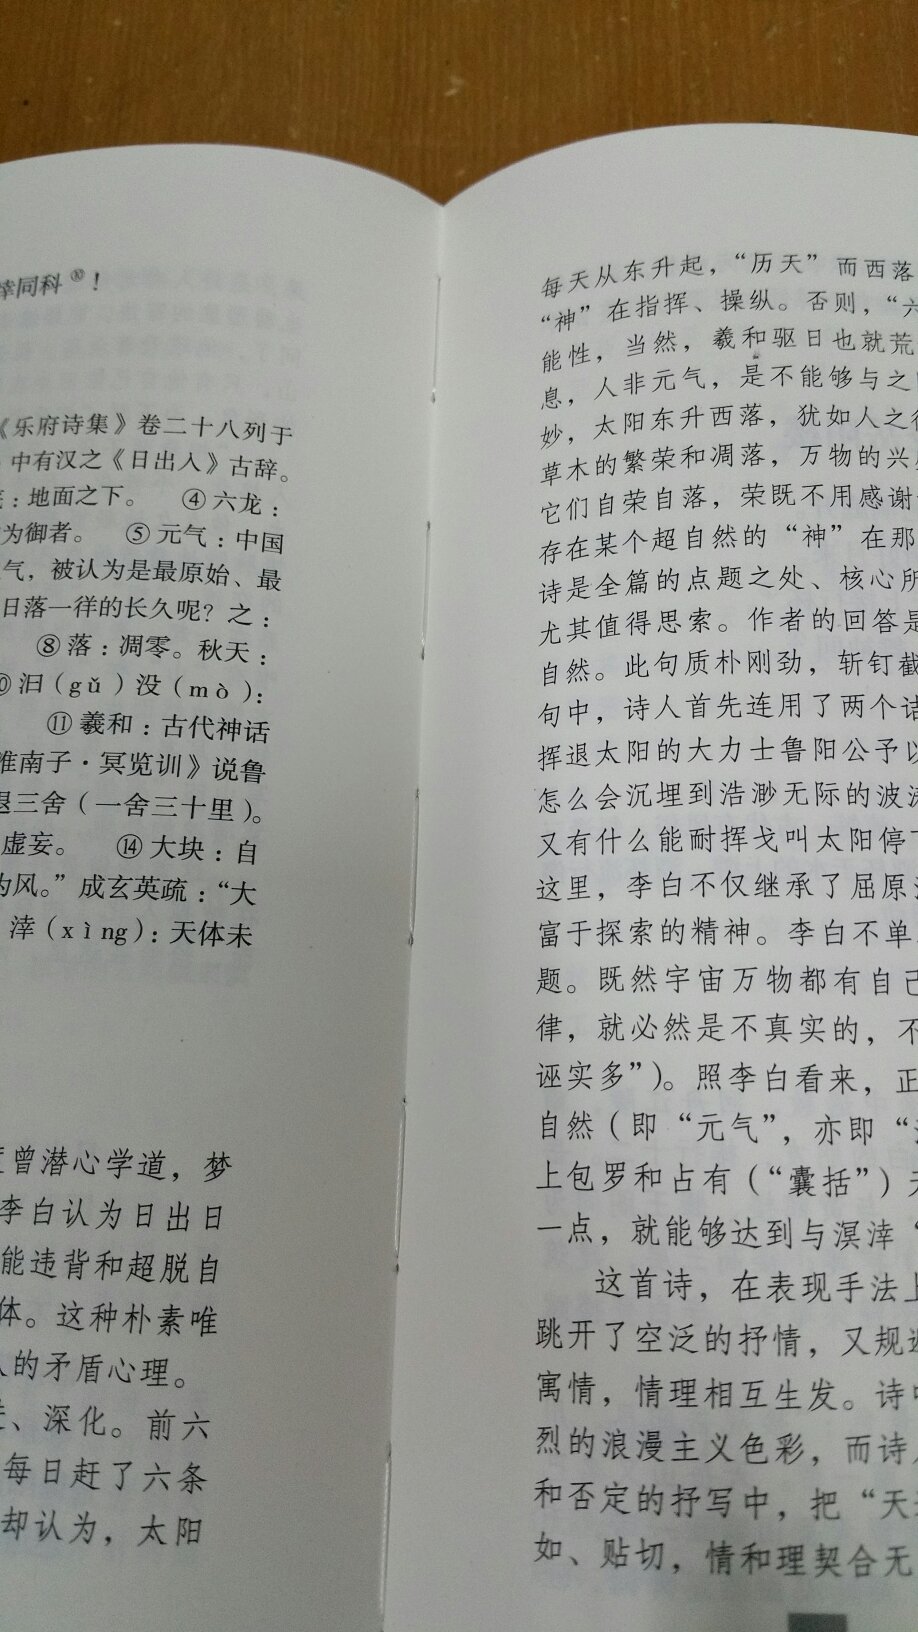 同科⑩！
《乐府诗集》卷二十八列于
中有汉之《日出入》古辞。
：地面之下。 ④六龙：
为御者。 ⑤元气：中国
气，被认为是最原始、最
日落一样的长久呢？之：
⑧落：凋零。秋天：
汩（gǔ）没（mò）：
⑪羲和：古代神话
南子·冥览训》说鲁
退三舍（一舍三十里）。
虚妄。 ⑭大块：自
为风。”成玄英疏：“大
涬（xìng）：天体未
曾潜心学道，梦
李白认为日出日
能违背和超脱自
体。这种朴素唯
的矛盾心理。
、深化。前六
每日赶了六条
却认为，太阳
每天从东升起，“历天”而西落
“神”在指挥、操纵。否则，“六
能性，当然，羲和驱日也就荒
息，人非元气，是不能够与之
妙，太阳东升西落，犹如人之
草木的繁荣和凋落，万物的兴
它们自荣自落，荣既不用感谢
存在某个超自然的“神”在那
诗是全篇的点题之处、核心所
尤其值得思索。作者的回答是
自然。此句质朴刚劲，斩钉截
句中，诗人首先连用了两个诘
挥退太阳的大力士鲁阳公予以
怎么会沉埋到浩渺无际的波涛
又有什么能耐挥戈叫太阳停下
这里，李白不仅继承了屈原
富于探索的精神。李白不单
题。既然宇宙万物都有自己
律，就必然是不真实的，不
诬实多”）。照李白看来，正
自然（即“元气”，亦即“
上包罗和占有（“囊括”）天
一点，就能够达到与溟涬“
这首诗，在表现手法上
跳开了空泛的抒情，又规避
寓情，情理相互生发。诗中
烈的浪漫主义色彩，而诗人
和否定的抒写中，把“天
如、贴切，情和理契合无